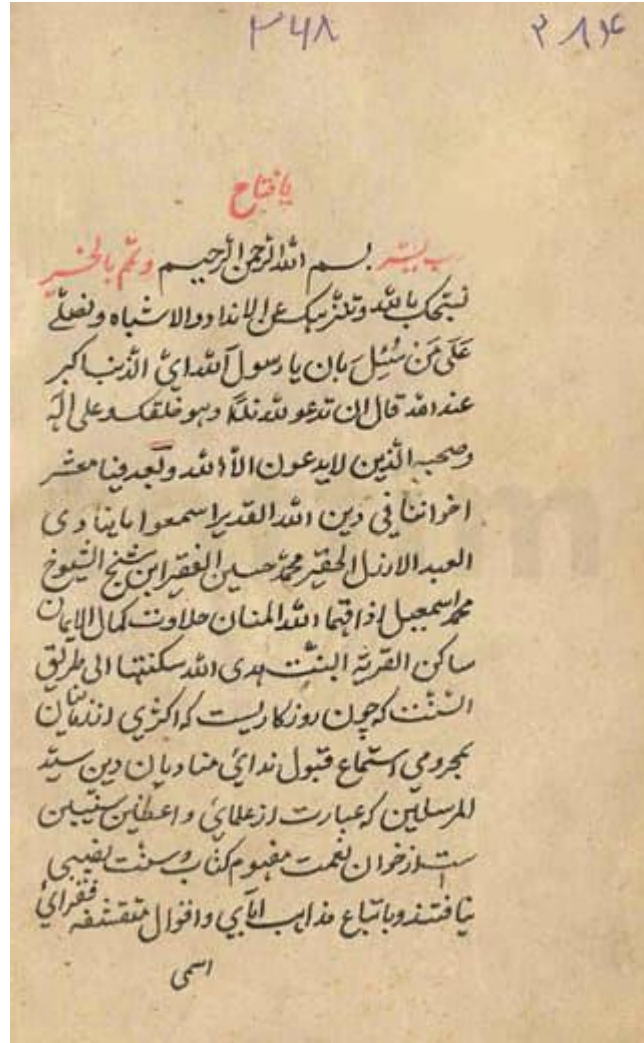 ۳۴۸
یا فتاح
رب یسر بسم الله الرحمن الرحیم وتمم بالخیر
نسبحک یا الله وننزهک عن الانداد والاشباه ونصلی
عَلَی مَنْ سُئِلَ بان یا رسول الله ایُّ الذنب اکبر
عند الله قال ان تدعو لله ندًّا وهو خلقک وعلی آله
وصحبه الذین لا یدعون الا الله وبعد فیا معشر
اخواننا فی دین الله القدیر اسمعوا ما ینادی
العبد الارذل الحقیر محمد حسین الفقیر ابن شیخ الشیوخ
محمد اسمعیل اذاقهما الله المنان حلاوت کمال الایمان
ساکن القریة البنت هدی الله سکنتها الی طریق
السنت که چون روزکاریست که اکثری از زمانیان
بمحرومی استماع قبول ندای منادیان دین سید
المرسلین که عبارت از علمای واعظین سنیین
است از خوان نعمت مفهوم کتاب و سنت نصیبی
نیافتند و باتباع مذاهب ابای و اقوال متقشفه فقرای
اسمی